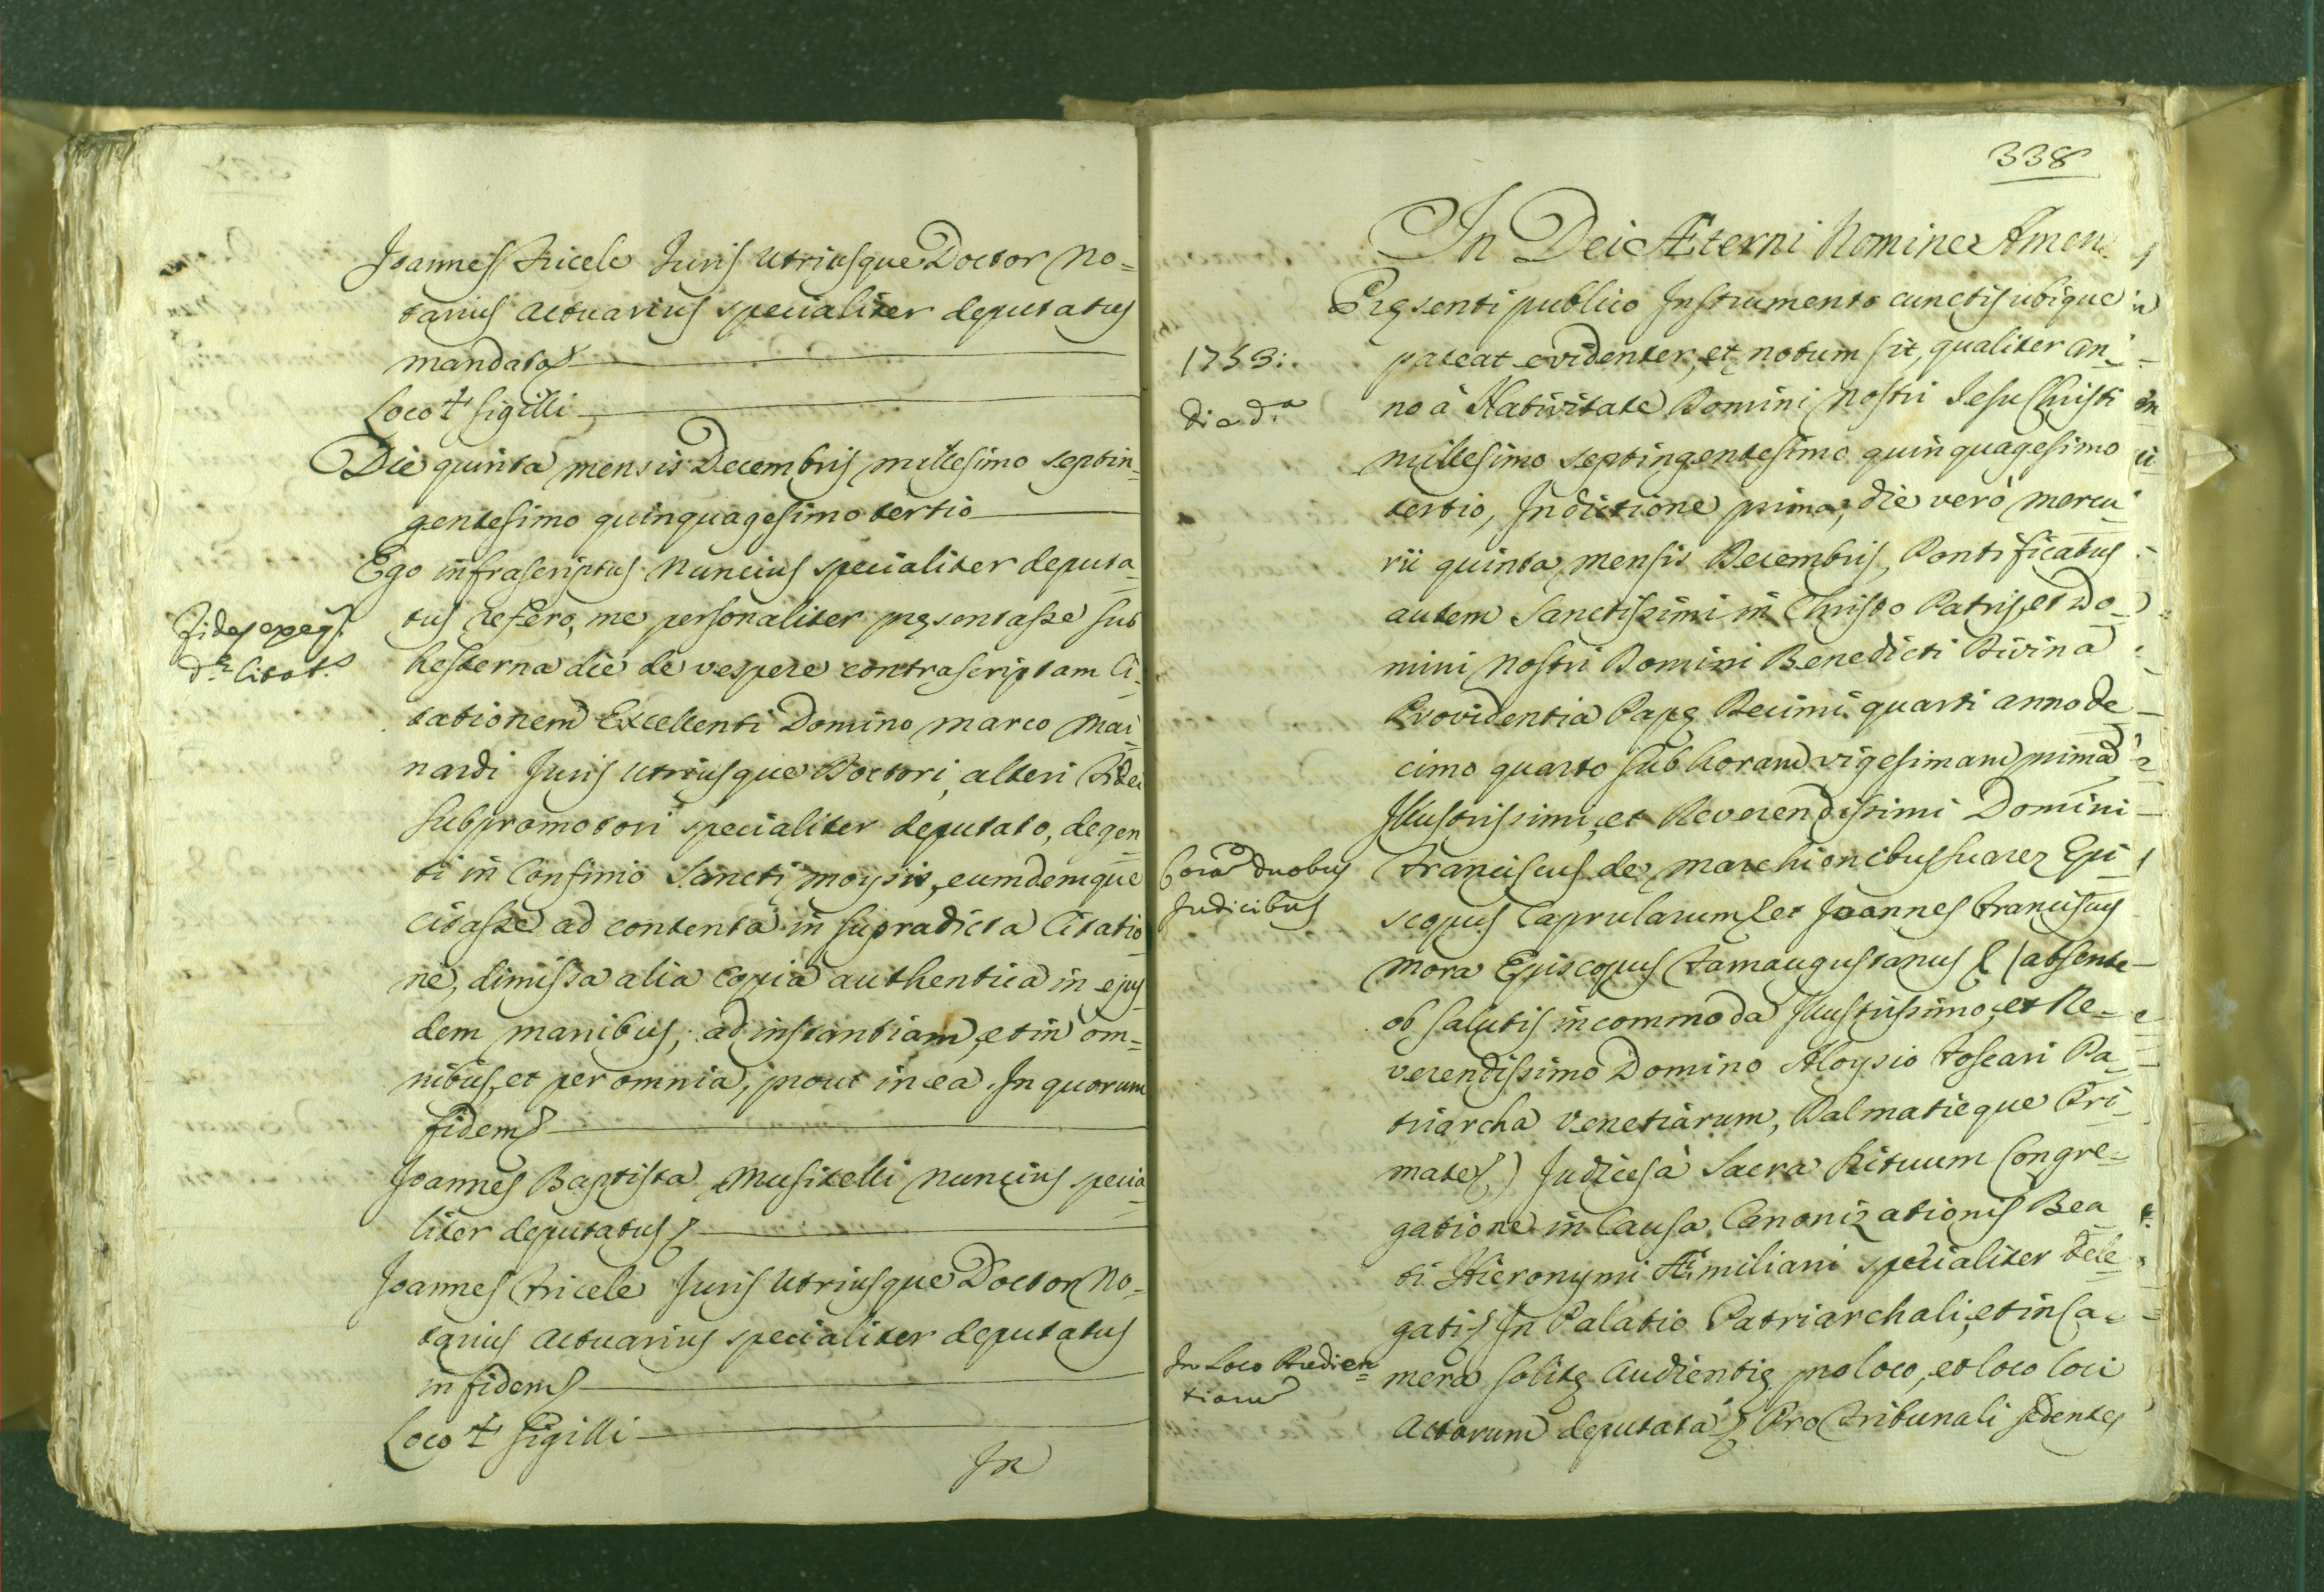 Joannes Fricele Juris Utriusque Doctor No=
tarius Actuarius specialiter deputatus
mandato
Loco + Sigilli
Die quinta mensis Decembris millesimo septin=
gentesimo quinquagesimo tertio
Ego infrascriptus Nuncius specialiter deputa=
tus refero, me personaliter pręsentasse sub
hesterna die de vespere contrascriptam Ci=
tationem Excellenti Domino Marco Mai=
nardi Juris Utriusque Doctori, alteri Fidei
Subpromotori specialiter deputato, degen=
ti in Confinio Sancti Moysis, eumdemque
citasse ad contenta in supradicta Citatio
ne, dimissa alia copia authentica in ejus
dem manibus; ad instantiam, et in om=
nibus, et per omnia, prout in ea. In quorum
fidem
Joannes Baptista Musitelli Nuncius specia=
liter deputatus
Joannes Fricele Juris Utriusque Doctor No=
tarius Actuarius specialiter deputatus
in fidem
Loco + Sigilli
In
Fides
Citat.
338
In Dei Æterni Nomine Amen
Pręsenti publico Instrumento cunctis ubique
pateat evidenter, et notum sit, qualiter an=
no à Nativitate Domini Nostri Jesu Christi
millesimo septingentesimo quinquagesimo
tertio, Indictione prima, die verò Mercu=
rii quinta mensis Decembris, Pontificatus
autem Sanctissimi in Christo Patris, et Do=
mini Nostri Domini Benedicti Divina
Providentia Papę Decimi quarti anno de=
cimo quarto sub horam vigesimam primā
Illustrissimi, et Reverendissimi Domini
Franciscus de Marchionibus Suarez Epi=
scopus Caprularum et Joannes Franciscus
Mora Episcopus Famaugustanus (absente
ob salutis incommoda Illustrissimo, et Re=
verendissimo Domino Aloysio Foscari Pa=
triarcha Venetiarum, Dalmatieque Pri=
mate) Judices à Sacra Rituum Congre=
gatione in Causa Canonizationis Bea
ti Hieronymi Æmiliani specialiter dele=
gati In Palatio Patriarchali, et in Ca=
mera solitę Audientię pro loco, et loco loci
Actorum deputata Pro Tribunali sedentes
1753:
Die d.ª
Corā duobus
Judicibus
In Loco Audien=
tiarū